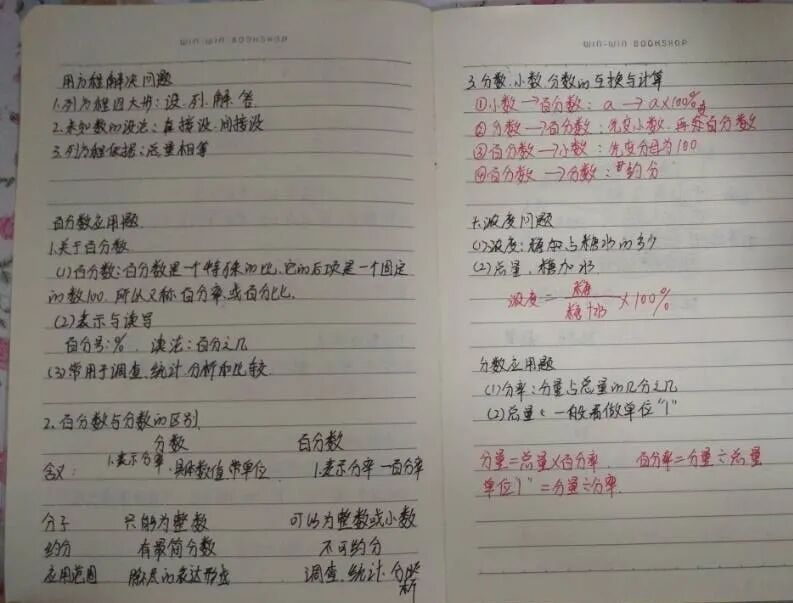 WIN-WIN BOOKSHOP
用方程解决问题
1.列方程四大步:设.列.解.答.
2.未知数的设法:直接设.间接设
3.列方程依据:总量相等
百分数应用题.
1.关于百分数
(1)百分数:百分数是一个特殊的比,它的后项是一个固定
的数100.所以又称百分率,或百分比.
(2)表示与读写
百分号:%. 读法:百分之几
(3)常用于调查.统计.分析和比较.
2.百分数与分数的区别.
分数 百分数
含义: 1.表示分率.具体数值.带单位 1.表示分率-百分率
分子 只能为整数 可以为整数或小数
约分 有最简分数 不可约分
应用范围 的表达形式 调查.统计.分析
WIN-WIN BOOKSHOP
3.分数.小数.分数的互换与计算
①小数→百分数: a→a×100%
②分数→百分数:先变小数.再变百分数
③百分数→小数:先变分母为100
④百分数→分数:约分
七.浓度问题
(1)浓度:糖与糖水的多少
(2)总量.糖加水
浓度=糖/糖+水×100%
分数应用题
(1)分率:分量占总量的几分之几
(2)总量:一般看做单位"1"
分量=总量×百分率. 百分率=分量÷总量
单位"1"=分量÷分率.